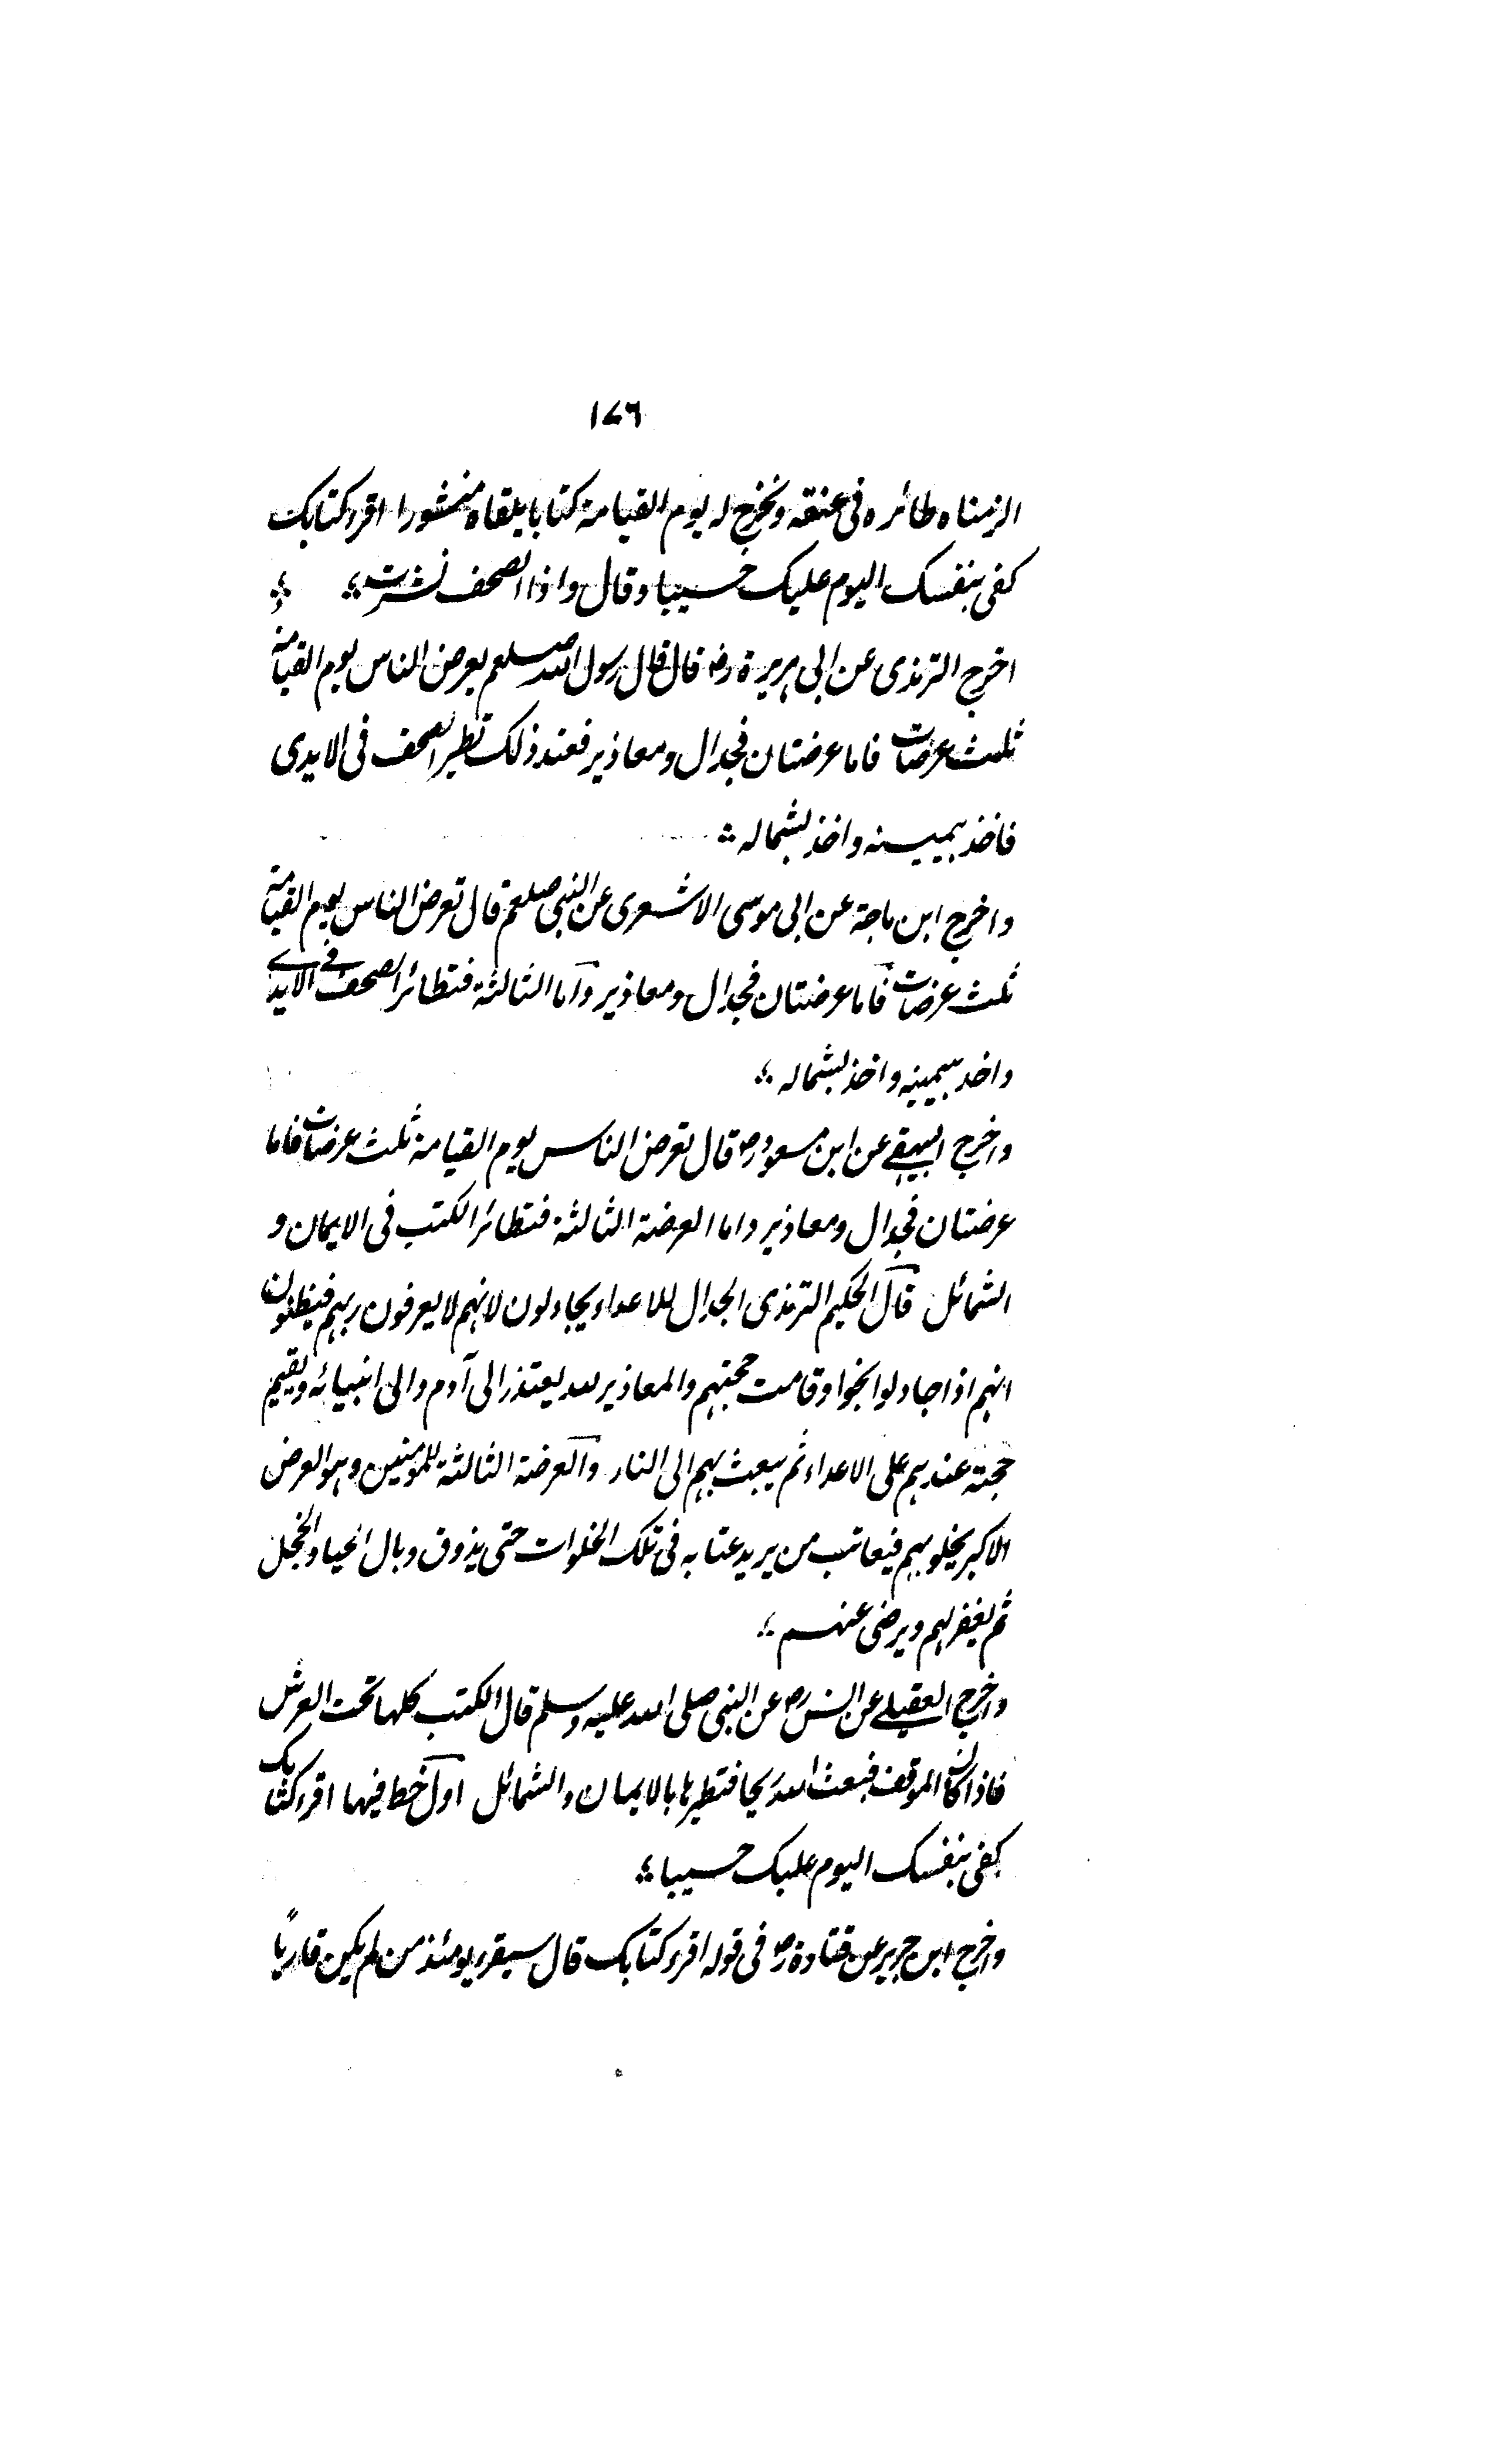 ١٧٦
الزمناه طائره فى عنقه ونخرج له يوم القيامة كتابا يلقاه منشورا اقرء كتابك
كفى بنفسك اليوم عليك حسيبا وقال واذا الصحف نشرت
اخرج الترمذى عن ابى هريرة رض قال قال رسول الله صلعم يعرض الناس يوم القيامة
ثلث عرضات فاما عرضتان فجدال ومعاذير فعند ذلك تطير الصحف فى الايدى
فاخذ بيمينه واخذ بشماله
واخرج ابن ماجة عن ابى موسى الاشعرى عن النبى صلعم قال تعرض الناس يوم القيامة
ثلث عرضات فاما عرضتان فجدال ومعاذير واما الثالثة فتطائر الصحف فى الايدى
واخذ بيمينه واخذ بشماله
واخرج البيهقى عن ابن مسعود رض قال يعرض الناس يوم القيامة ثلث عرضات فاما
عرضتان فجدال ومعاذير واما العرضة الثالثة فتطائر الكتب فى الايمان و
الشمائل قال الحكيم الترمذى الجدال للاعداء يجادلون لانهم لا يعرفون ربهم فيظنون
انهم اذا جادلوا نجوا وقامت حجتهم والمعاذير لله يعتذر الى آدم والى انبيائه ويقيم
حجته عندهم على الاعداء ثم يبعث بهم الى النار والعرضة الثالثة للمؤمنين وهو العرض
الاكبر يخلو بهم فيعاتب من يريد عتابه فى تلك الخلوات حتى يذوق وبال الحيا والخجل
ثم يغفر لهم ويرضى عنهم
واخرج العقيلى عن انس رض عن النبى صلى الله عليه وسلم قال الكتب كلها تحت العرش
فاذا كان الموقف فبعث الله ريحا فتطيرها بالايمان والشمائل اول خط فيها اقرء كتابك
كفى بنفسك اليوم عليك حسيبا
واخرج ابن جرير عن قتادة رض فى قوله اقرء كتابك قال سيقرء يومئذ من لم يكن قاريًا